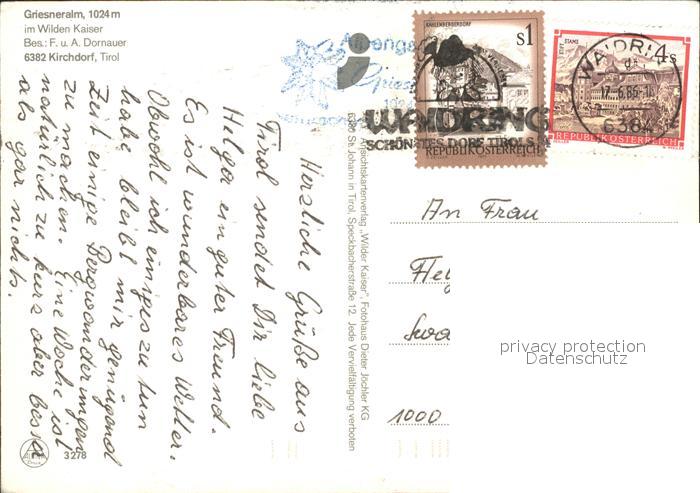 Griesneralm, 1024 m
im Wilden Kaiser
Bes.: F. u. A. Dornauer
6382 Kirchdorf, Tirol
KAHLENBERGERDORF
s1
REPUBLIK ÖSTERREICH
STIFT STAMS
4s
REPUBLIK ÖSTERREICH
WAIDRING
17.-6.86-16
WAIDRING
SCHÖNSTES DORF TIROLS
Alpengas
Gries
Herzliche Grüße aus
Tirol sendet Dir liebe
Helga ein guter Freund.
Es ist wunderbares Wetter.
Obwohl ich einiges zu tun
habe bleibt mir genügend
Zeit einige Bergwanderungen
zu machen. Eine Woche ist
natürlich zu kurz aber besser
als gar nichts.
Ansichtskartenverlag „Wilder Kaiser", Fotohaus Dieter Jöchler KG
6380 St. Johann in Tirol, Speckbacherstraße 12. Jede Vervielfältigung verboten
An Frau
Hel
1000
3278
privacy protection
Datenschutz